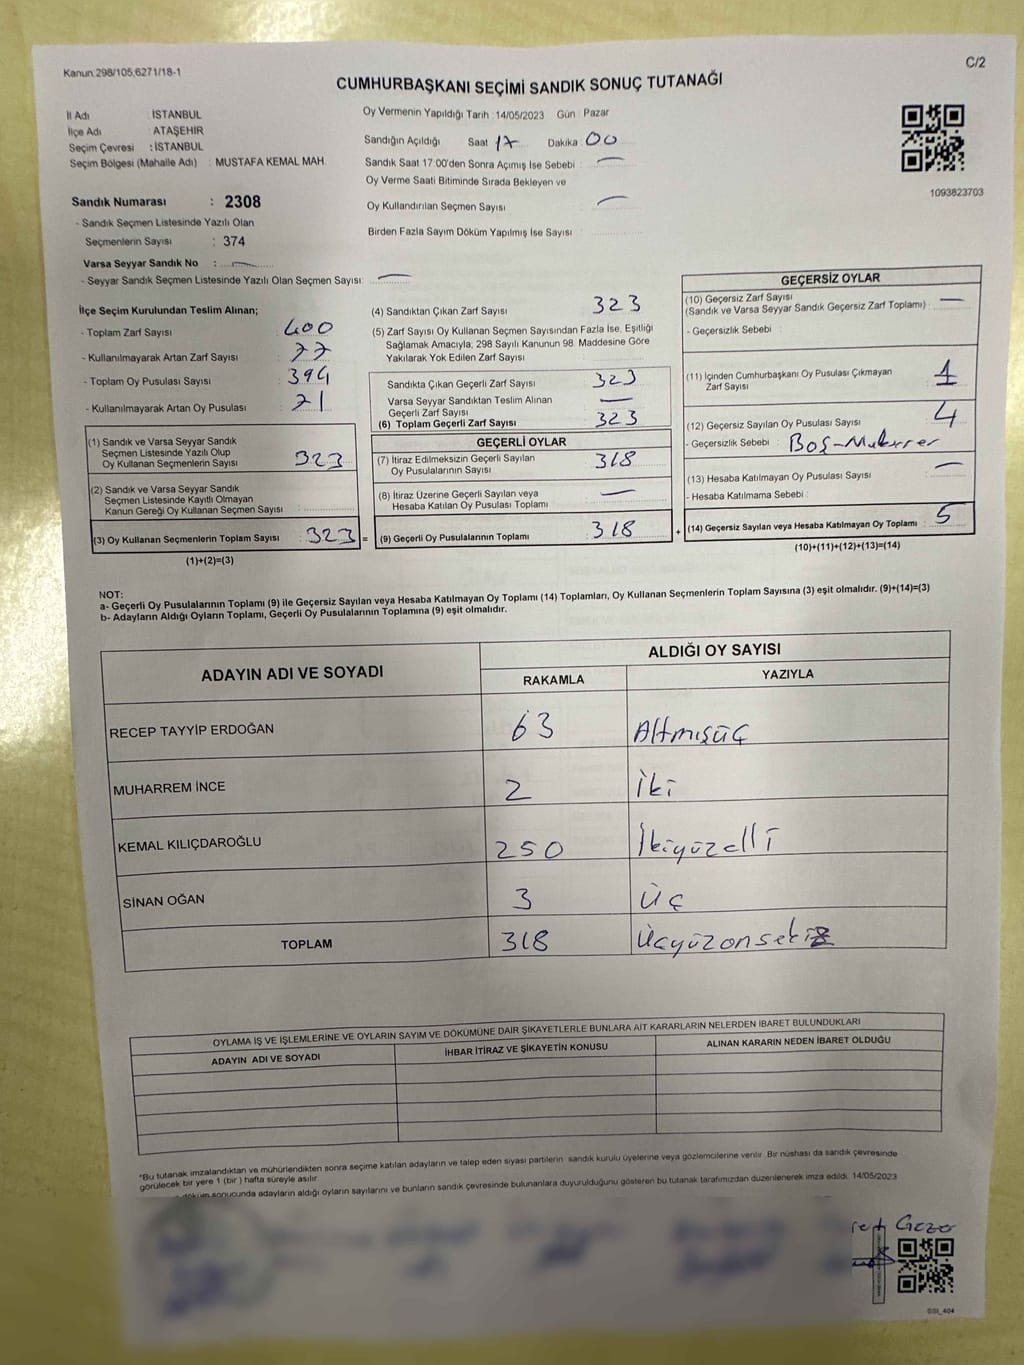 Kanun:298/105,6271/18-1
C/2
CUMHURBAŞKANI SEÇİMİ SANDIK SONUÇ TUTANAĞI
İl Adı İSTANBUL
İlçe Adı ATAŞEHİR
Seçim Çevresi : İSTANBUL
Seçim Bölgesi (Mahalle Adı) : MUSTAFA KEMAL MAH.
Oy Vermenin Yapıldığı Tarih :14/05/2023 Gün : Pazar
Sandığın Açıldığı Saat 17 Dakika 00
Sandık Saat 17:00'den Sonra Açımış İse Sebebi : —
Oy Verme Saati Bitiminde Sırada Bekleyen ve
Oy Kullandırılan Seçmen Sayısı —
Birden Fazla Sayım Döküm Yapılmış İse Sayısı
1093823703
Sandık Numarası : 2308
- Sandık Seçmen Listesinde Yazılı Olan
Seçmenlerin Sayısı : 374
Varsa Seyyar Sandık No : —
- Seyyar Sandık Seçmen Listesinde Yazılı Olan Seçmen Sayısı: —
İlçe Seçim Kurulundan Teslim Alınan;
- Toplam Zarf Sayısı : 400
- Kullanılmayarak Artan Zarf Sayısı : 77
- Toplam Oy Pusulası Sayısı : 394
- Kullanılmayarak Artan Oy Pusulası : 71
(1) Sandık ve Varsa Seyyar Sandık
Seçmen Listesinde Yazılı Olup
Oy Kullanan Seçmenlerin Sayısı : 323
(2) Sandık ve Varsa Seyyar Sandık
Seçmen Listesinde Kayıtlı Olmayan
Kanun Gereği Oy Kullanan Seçmen Sayısı :
(3) Oy Kullanan Seçmenlerin Toplam Sayısı : 323 =
(1)+(2)=(3)
(4) Sandıktan Çıkan Zarf Sayısı 323
(5) Zarf Sayısı Oy Kullanan Seçmen Sayısından Fazla İse, Eşitliği
Sağlamak Amacıyla; 298 Sayılı Kanunun 98. Maddesine Göre
Yakılarak Yok Edilen Zarf Sayısı :
Sandıkta Çıkan Geçerli Zarf Sayısı : 323
Varsa Seyyar Sandıktan Teslim Alınan
Geçerli Zarf Sayısı : —
(6) Toplam Geçerli Zarf Sayısı : 323
GEÇERLİ OYLAR
(7) İtiraz Edilmeksizin Geçerli Sayılan
Oy Pusulalarının Sayısı : 318
(8) İtiraz Üzerine Geçerli Sayılan veya
Hesaba Katılan Oy Pusulası Toplamı : —
(9) Geçerli Oy Pusulalarının Toplamı : 318 +
GEÇERSİZ OYLAR
(10) Geçersiz Zarf Sayısı
(Sandık ve Varsa Seyyar Sandık Geçersiz Zarf Toplamı) : —
- Geçersizlik Sebebi :
(11) İçinden Cumhurbaşkanı Oy Pusulası Çıkmayan
Zarf Sayısı : 1
(12) Geçersiz Sayılan Oy Pusulası Sayısı : 4
- Geçersizlik Sebebi : Boş-Mükerrer
(13) Hesaba Katılmayan Oy Pusulası Sayısı : —
- Hesaba Katılmama Sebebi :
(14) Geçersiz Sayılan veya Hesaba Katılmayan Oy Toplamı : 5
(10)+(11)+(12)+(13)=(14)
NOT:
a- Geçerli Oy Pusulalarının Toplamı (9) ile Geçersiz Sayılan veya Hesaba Katılmayan Oy Toplamı (14) Toplamları, Oy Kullanan Seçmenlerin Toplam Sayısına (3) eşit olmalıdır. (9)+(14)=(3)
b- Adayların Aldığı Oyların Toplamı, Geçerli Oy Pusulalarının Toplamına (9) eşit olmalıdır.
ADAYIN ADI VE SOYADI
ALDIĞI OY SAYISI
RAKAMLA YAZIYLA
RECEP TAYYİP ERDOĞAN 63 Altmışüç
MUHARREM İNCE 2 İki
KEMAL KILIÇDAROĞLU 250 İkiyüzelli
SİNAN OĞAN 3 Üç
TOPLAM 318 Üçyüzonsekiz
OYLAMA İŞ VE İŞLEMLERİNE VE OYLARIN SAYIM VE DÖKÜMÜNE DAİR ŞİKAYETLERLE BUNLARA AİT KARARLARIN NELERDEN İBARET BULUNDUKLARI
ADAYIN ADI VE SOYADI İHBAR İTİRAZ VE ŞİKAYETİN KONUSU ALINAN KARARIN NEDEN İBARET OLDUĞU
*Bu tutanak imzalandıktan ve mühürlendikten sonra seçime katılan adayların ve talep eden siyasi partilerin sandık kurulu üyelerine veya gözlemcilerine verilir. Bir nüshası da sandık çevresinde
görülecek bir yere 1 (bir ) hafta süreyle asılır.
döküm sonucunda adayların aldığı oyların sayılarını ve bunların sandık çevresinde bulunanlara duyurulduğunu gösteren bu tutanak tarafımızdan düzenlenerek imza edildi. 14/05/2023
Gezer
SSI_404